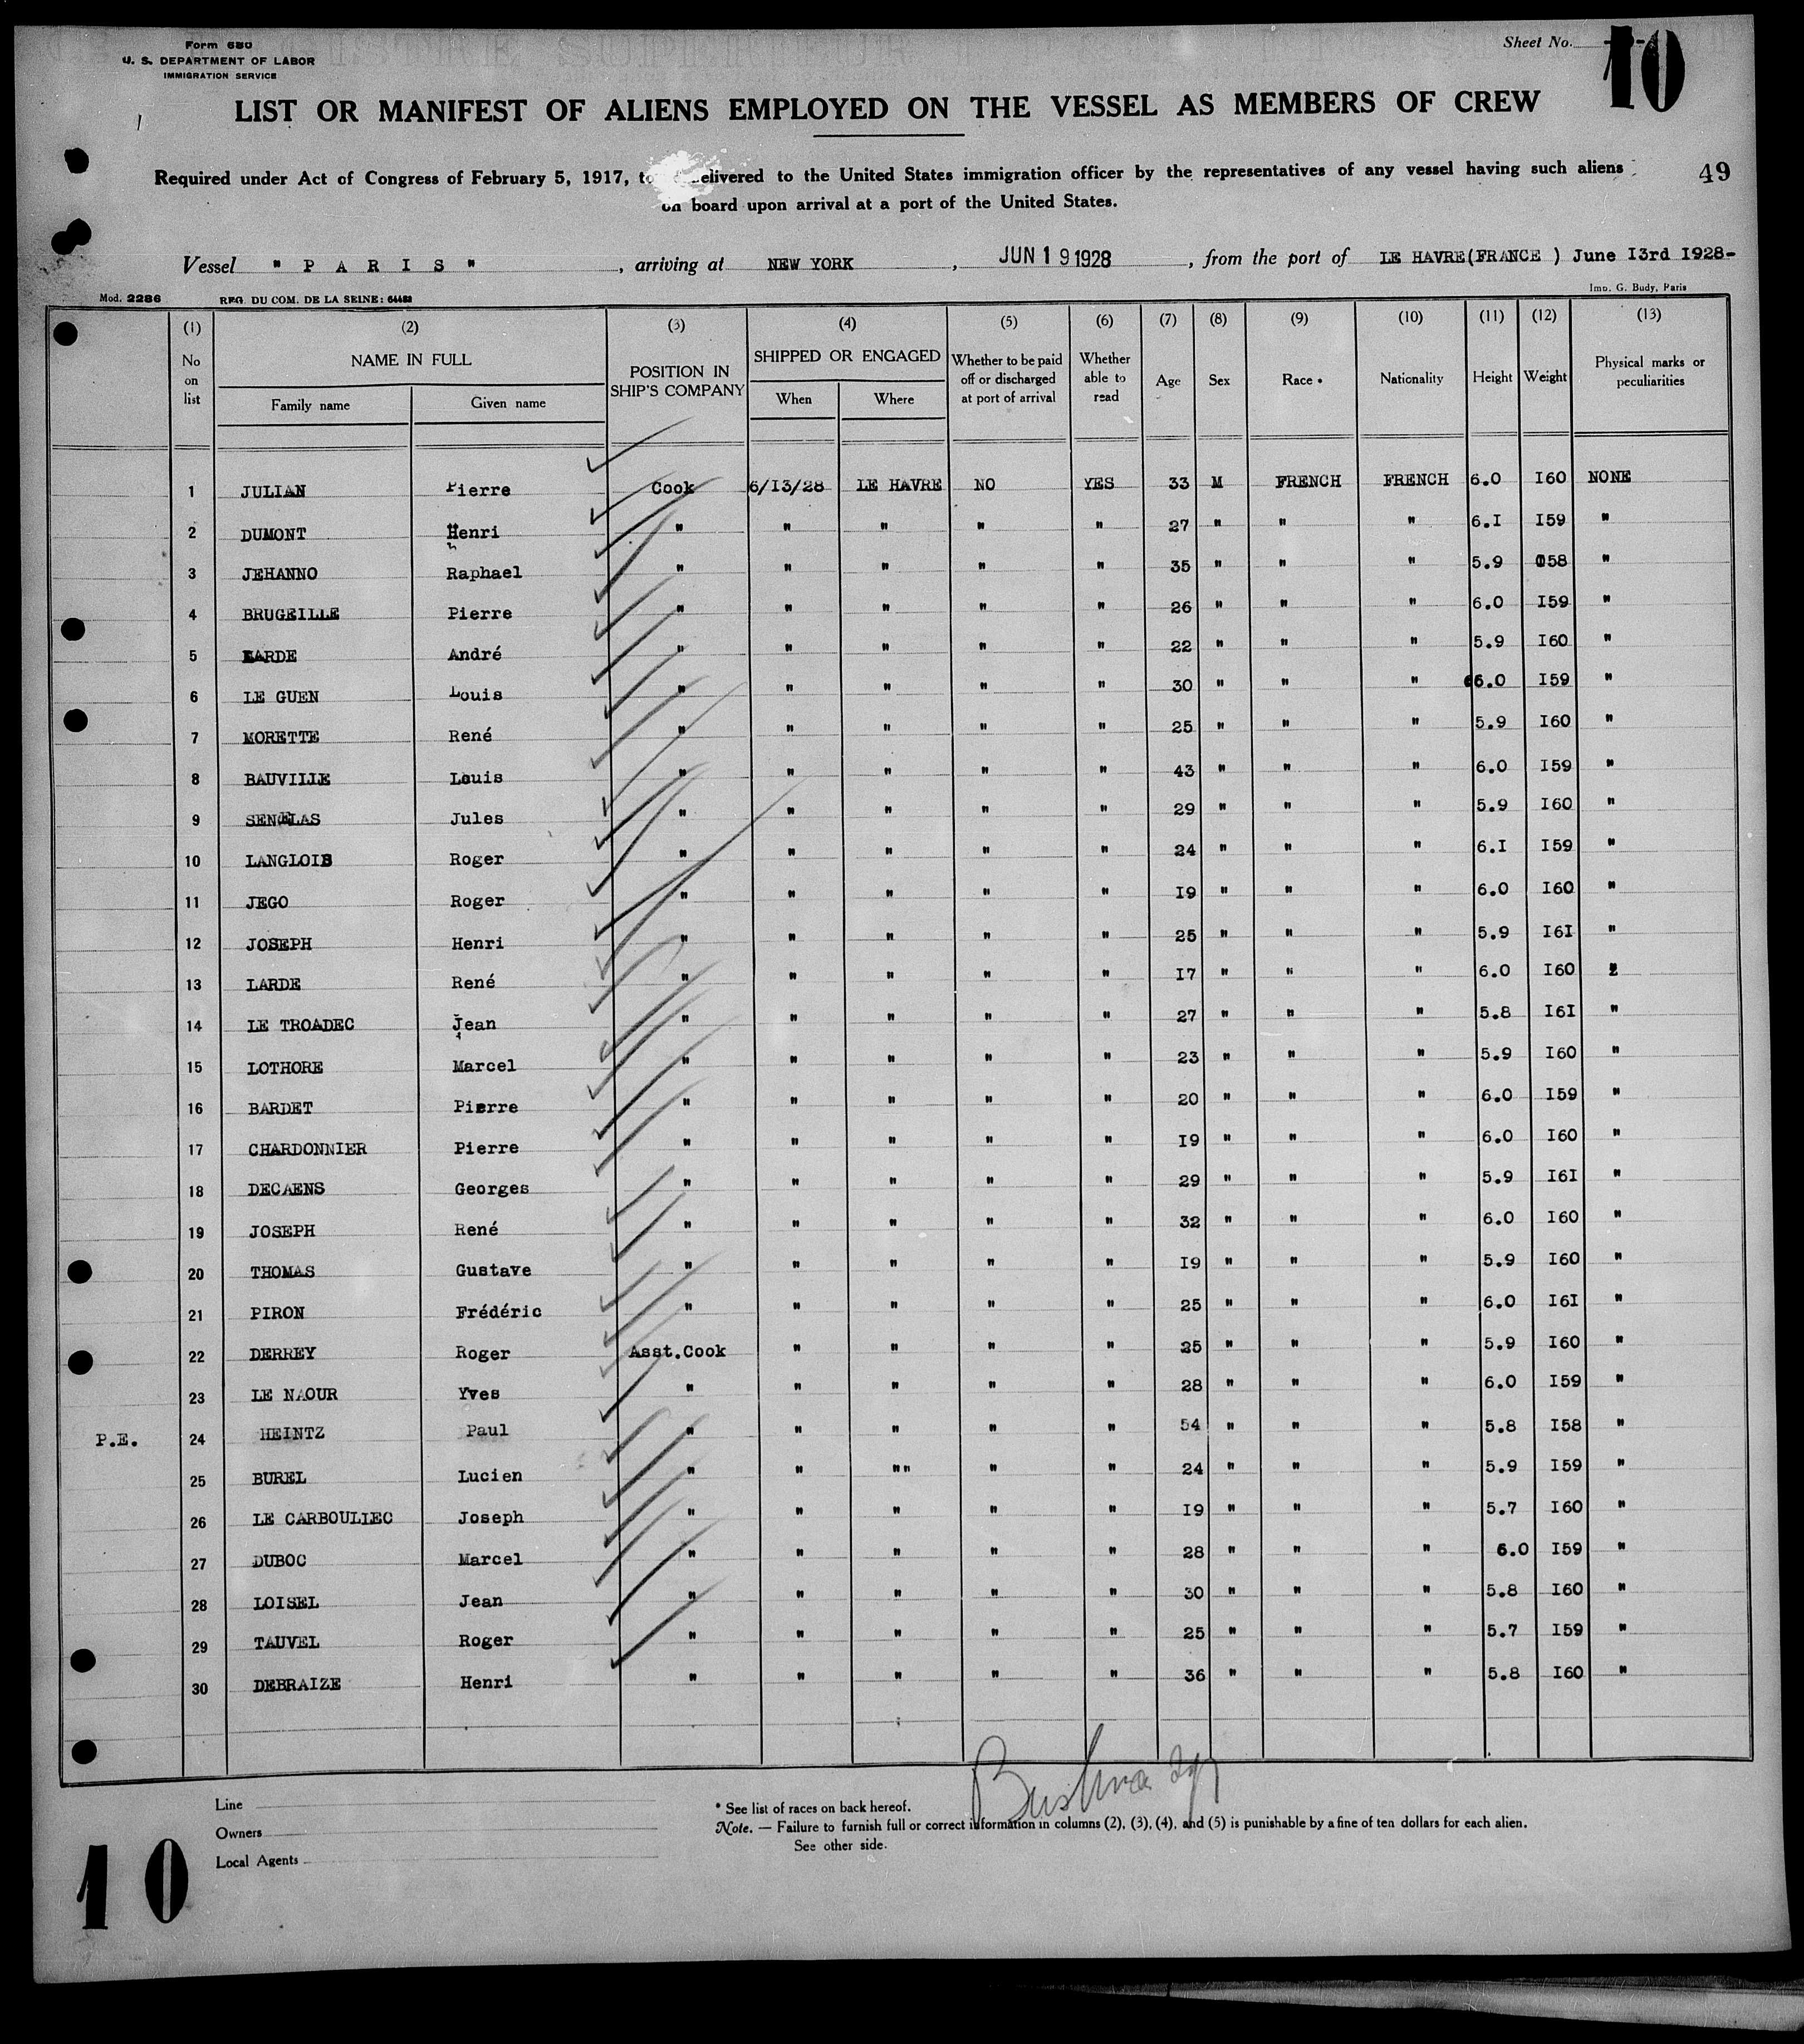 Form 680
U. S. DEPARTMENT OF LABOR
IMMIGRATION SERVICE
Sheet No. 10
LIST OR MANIFEST OF ALIENS EMPLOYED ON THE VESSEL AS MEMBERS OF CREW
Required under Act of Congress of February 5, 1917, to delivered to the United States immigration officer by the representatives of any vessel having such aliens
49
on board upon arrival at a port of the United States.
Vessel " P A R I S ", arriving at NEW YORK, JUN 19 1928, from the port of LE HAVRE(FRANCE ) June I3rd I928-
Mod. 2286 REG. DU COM. DE LA SEINE: 64482 Imp. G. Budy, Paris
(1) (2) (3) (4) (5) (6) (7) (8) (9) (10) (11) (12) (13)
No on list NAME IN FULL Family name Given name POSITION IN SHIP'S COMPANY SHIPPED OR ENGAGED When Where Whether to be paid off or discharged at port of arrival Whether able to read Age Sex Race * Nationality Height Weight Physical marks or peculiarities
1 JULIAN Pierre Cook 6/I3/28 LE HAVRE NO YES 33 M FRENCH FRENCH 6.0 I60 NONE
2 DUMONT Henri " " " " " 27 " " " 6.I I59 "
3 JEHANNO Raphael " " " " " 35 " " " 5.9 I58 "
4 BRUGEILLE Pierre " " " " " 26 " " " 6.0 I59 "
5 LARDE André " " " " " 22 " " " 5.9 I60 "
6 LE GUEN Louis " " " " " 30 " " " 6.0 I59 "
7 MORETTE René " " " " " 25 " " " 5.9 I60 "
8 BAUVILLE Louis " " " " " 43 " " " 6.0 I59 "
9 Jules " " " " " 29 " " " 5.9 I60 "
10 LANGLOIS Roger " " " " " 24 " " " 6.I I59 "
11 JEGO Roger " " " " " I9 " " " 6.0 I60 "
12 JOSEPH Henri " " " " " 25 " " " 5.9 I6I "
13 LARDE René " " " " " I7 " " " 6.0 I60 "
14 LE TROADEC Jean " " " " " 27 " " " 5.8 I6I "
15 LOTHORE Marcel " " " " " 23 " " " 5.9 I60 "
16 BARDET Pierre " " " " " 20 " " " 6.0 I59 "
17 CHARDONNIER Pierre " " " " " I9 " " " 6.0 I60 "
18 DECAENS Georges " " " " " 29 " " " 5.9 I6I "
19 JOSEPH René " " " " " 32 " " " 6.0 I60 "
20 THOMAS Gustave " " " " " I9 " " " 5.9 I60 "
21 PIRON Frédéric " " " " " 25 " " " 6.0 I6I "
22 DERREY Roger Asst.Cook " " " " 25 " " " 5.9 I60 "
23 LE NAOUR Yves " " " " " 28 " " " 6.0 I59 "
P.E. 24 HEINTZ Paul " " " " " 54 " " " 5.8 I58 "
25 BUREL Lucien " " "" " " 24 " " " 5.9 I59 "
26 LE CARBOULIEC Joseph " " " " " I9 " " " 5.7 I60 "
27 DUBOC Marcel " " " " " 28 " " " 6.0 I59 "
28 LOISEL Jean " " " " " 30 " " " 5.8 I60 "
29 TAUVEL Roger " " " " " 25 " " " 5.7 I59 "
30 DEBRAIZE Henri " " " " " 36 " " " 5.8 I60 "
Line
Owners
Local Agents
* See list of races on back hereof.
Note. — Failure to furnish full or correct information in columns (2), (3), (4), and (5) is punishable by a fine of ten dollars for each alien.
See other side.
10